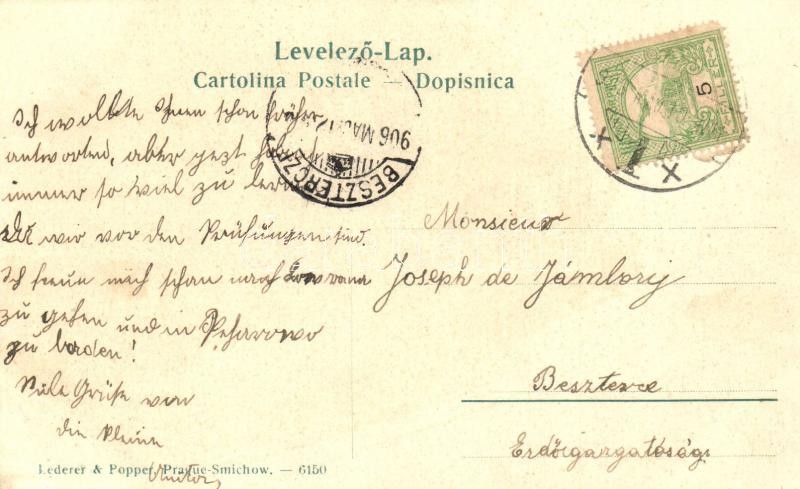 Levelező-Lap.
Cartolina Postale — Dopisnica
Ich wollte Ihnen schon früher
antworten, aber jezt
immer so viel zu
wir vor den Prüfungen sind.
Ich freue mich schon nach Lovrana
zu gehen und in
zu baden!
Viele Grüße von
die kleine
BESZTERCZE
906 MAJ
5
Monsieur
Joseph de Jámbory
Besztercе
Erdőigazgatóság
Lederer & Popper, Prague-Smichow. — 6150